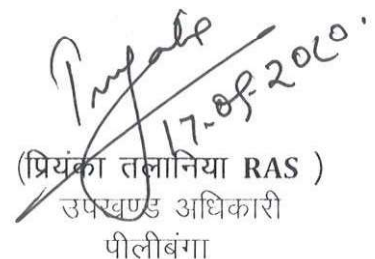 17-09-2020.
(प्रियंका तलानिया RAS )
उपखण्ड अधिकारी
पीलीबंगा